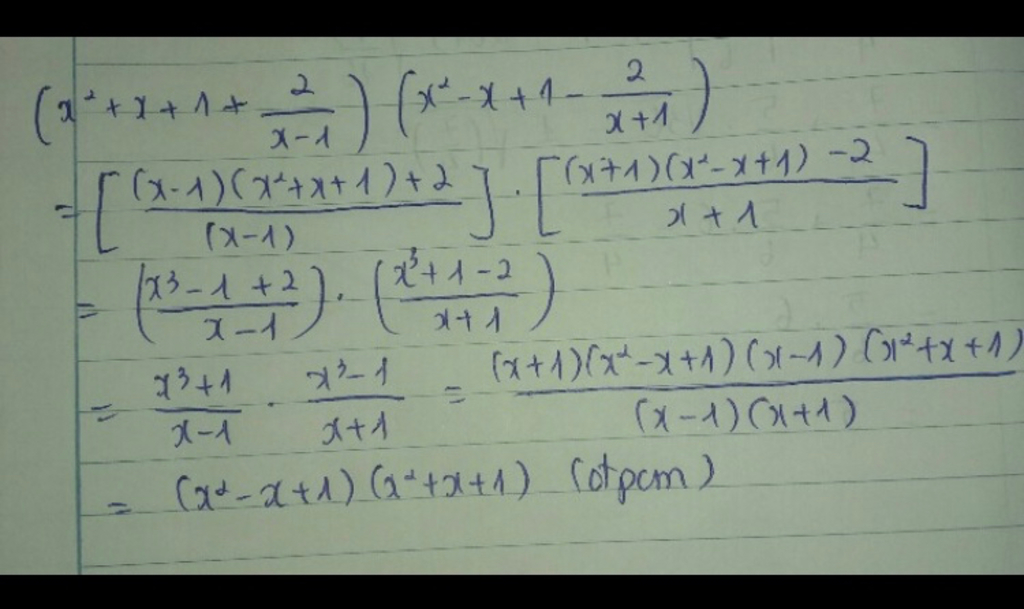 (x² + x + 1 + 2/(x-1)) (x² - x + 1 - 2/(x+1))
= [((x-1)(x²+x+1)+2)/(x-1)] · [((x+1)(x²-x+1)-2)/(x+1)]
= ((x³-1+2)/(x-1)) · ((x³+1-2)/(x+1))
= (x³+1)/(x-1) · (x³-1)/(x+1) = ((x+1)(x²-x+1)(x-1)(x²+x+1))/((x-1)(x+1))
= (x²-x+1)(x²+x+1) (đpcm)